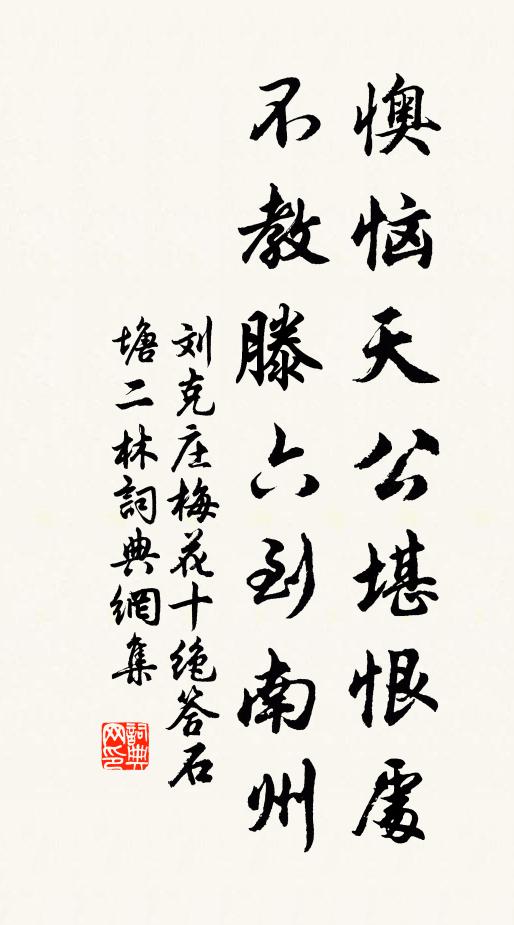 懊恼天公堪恨處
不教滕六到南州
刘克庄梅花十绝答石
塘二林詞典網集
詞典網印